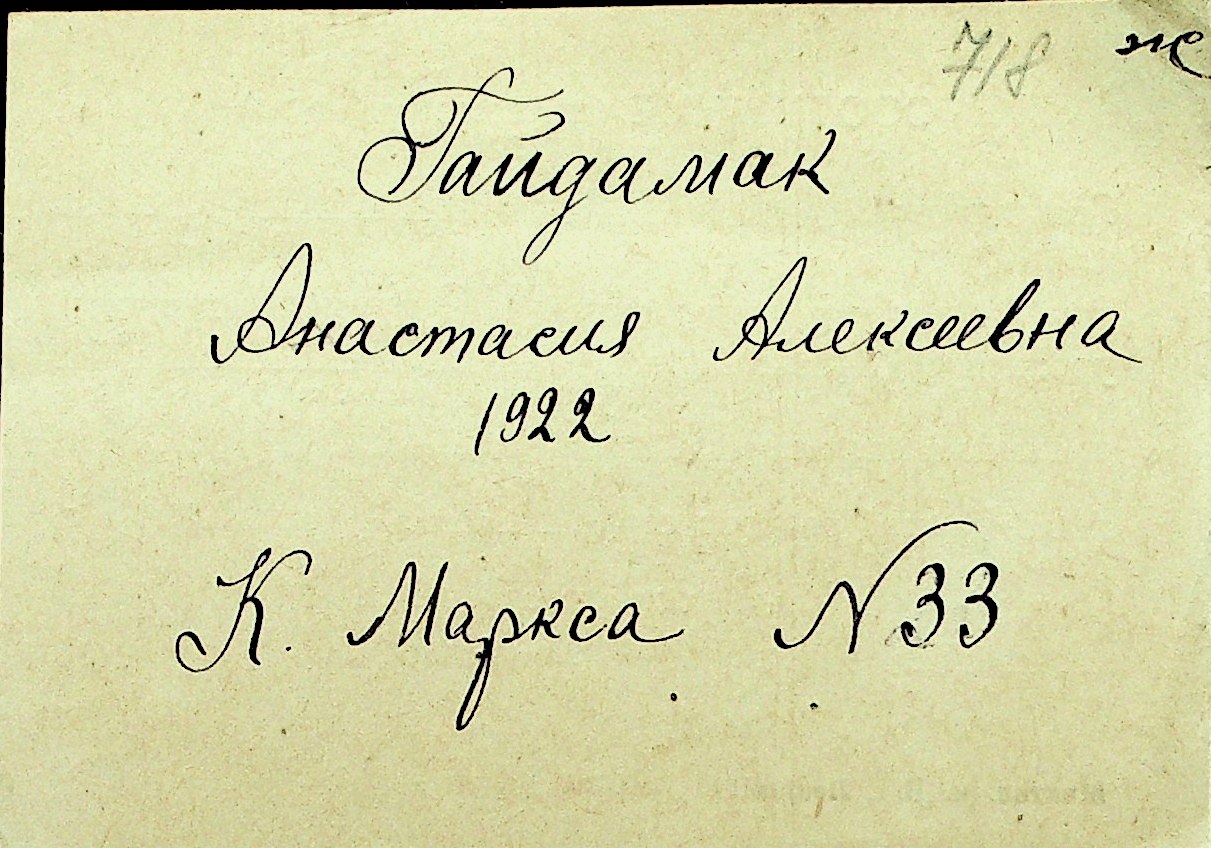 718 ж
Гайдамак
Анастасия Алексеевна
1922
К. Маркса N 33